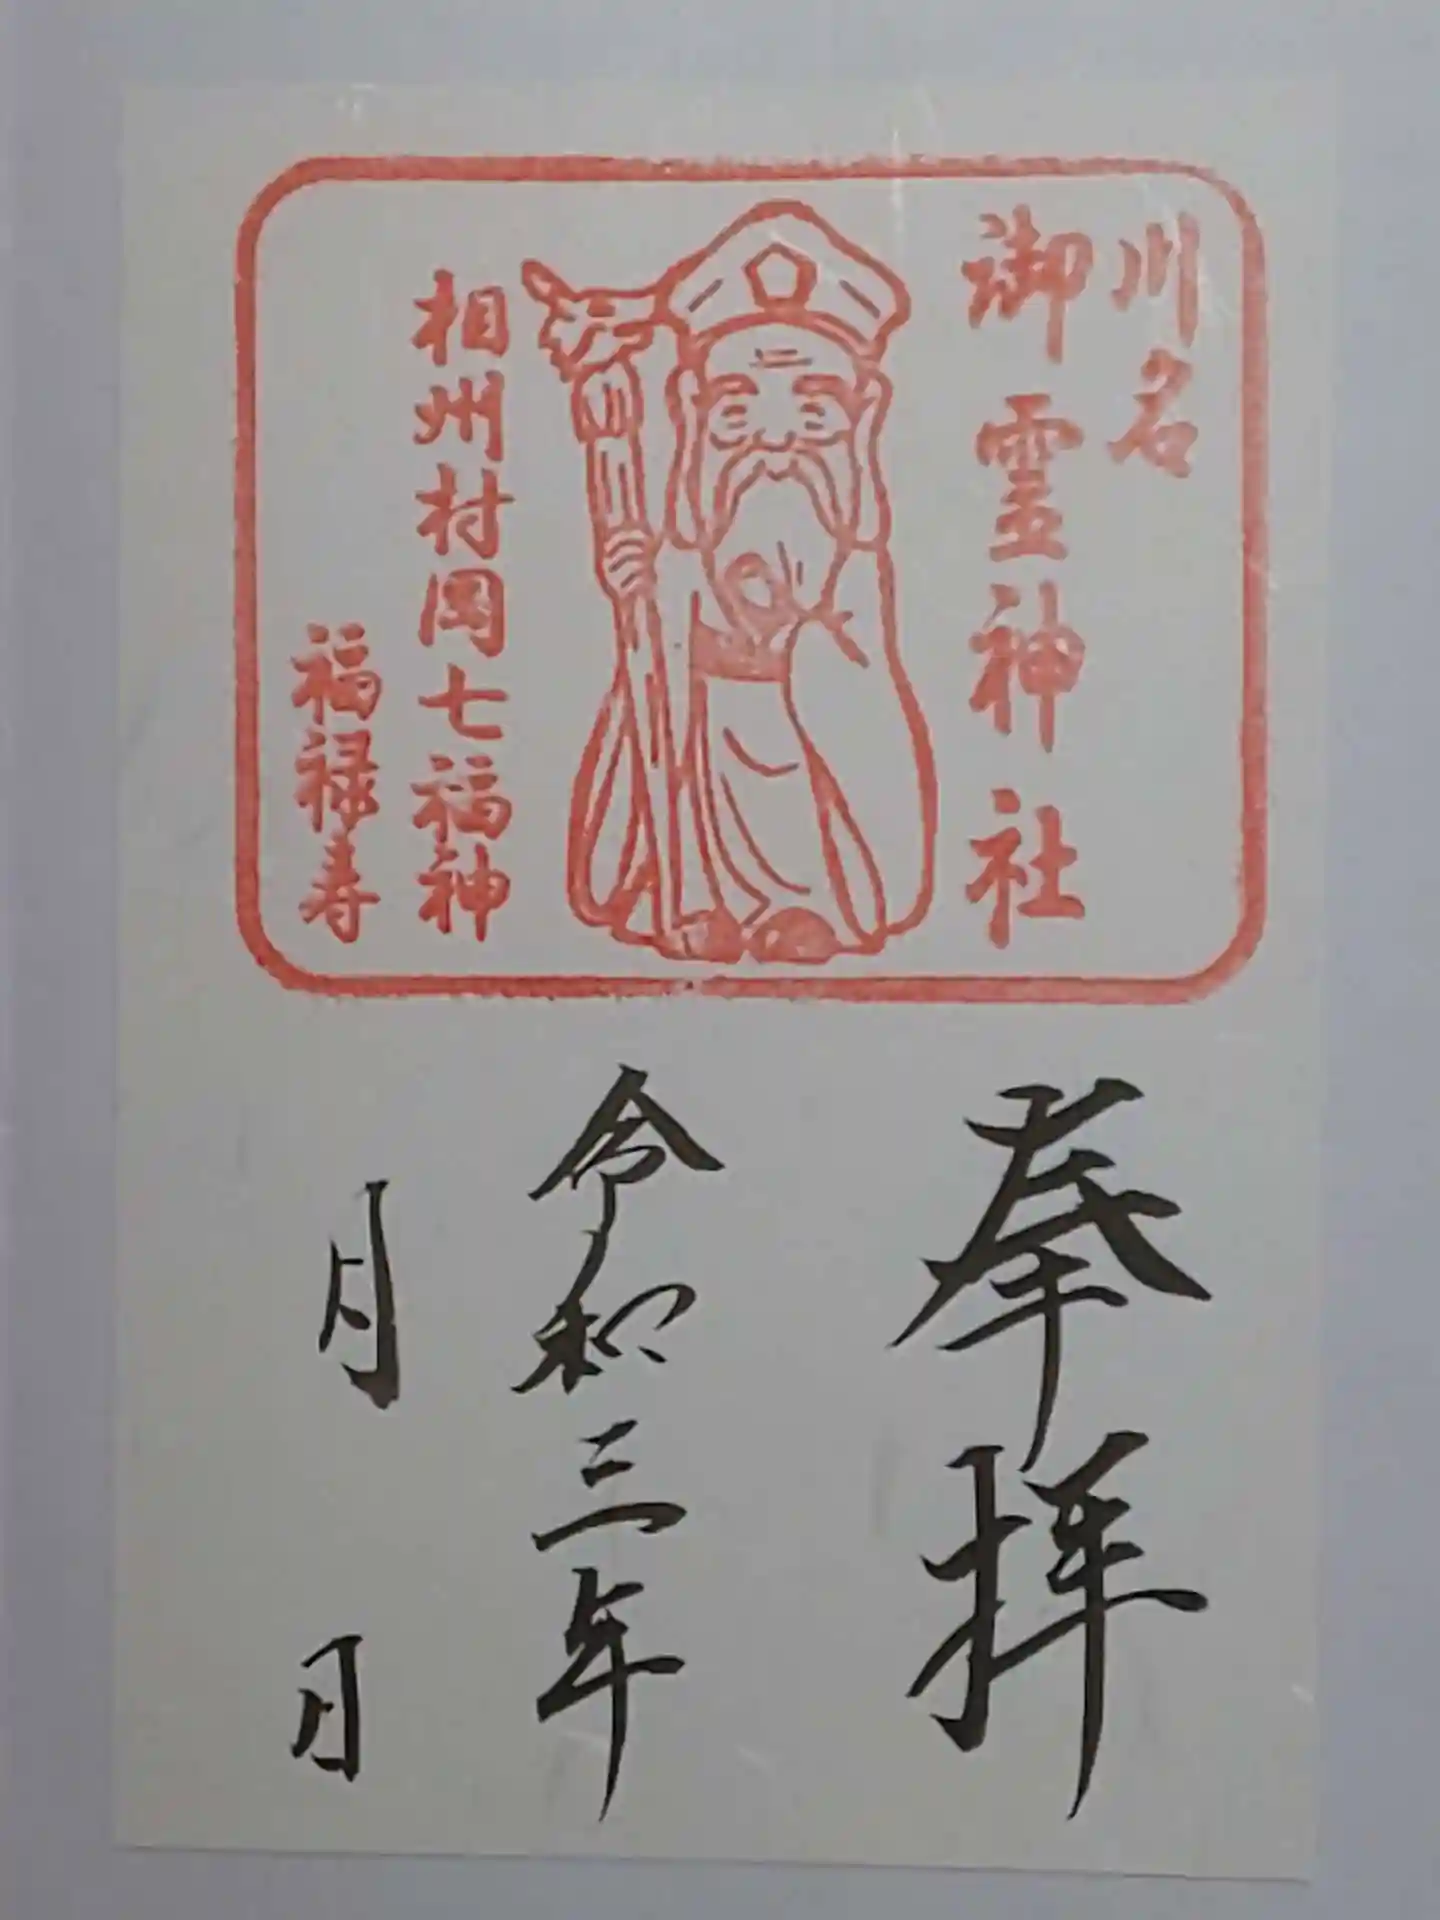 川名
御霊神社
相州村岡七福神
福禄寿
奉拝
令和三年
月
日